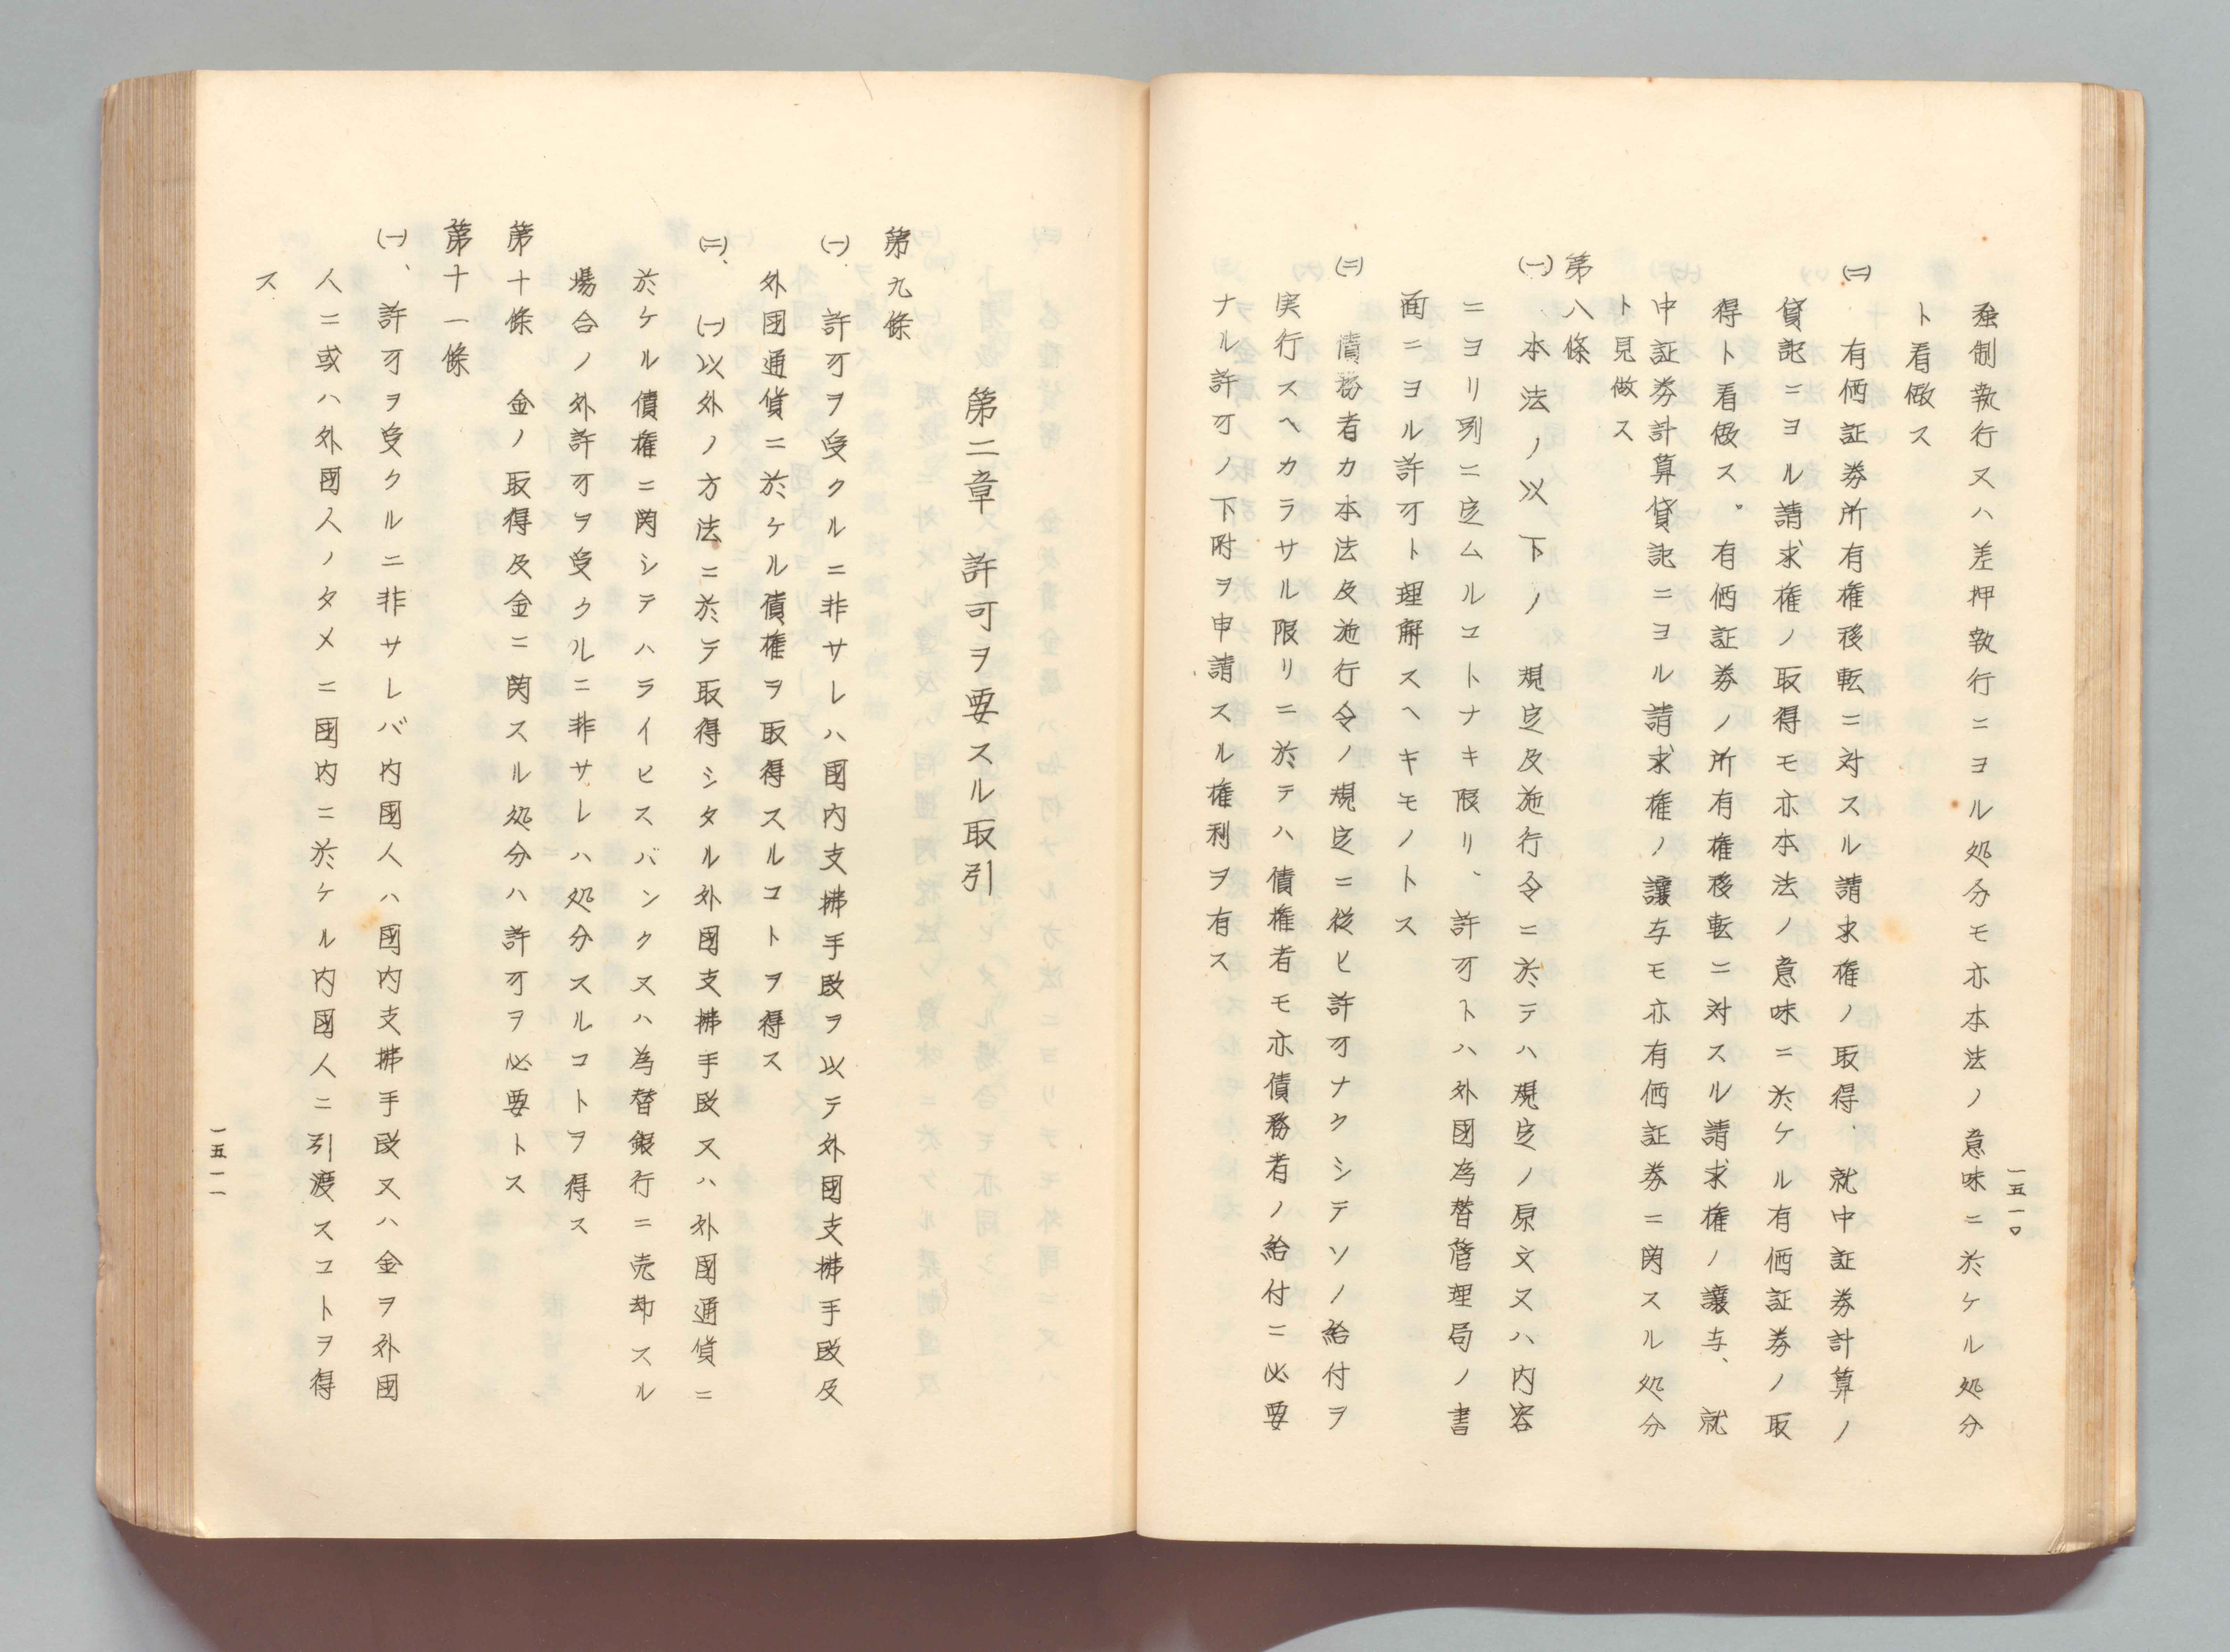 一五一〇
強制執行又ハ差押執行ニヨル処分モ亦本法ノ意味ニ於ケル処分
ト看做ス
(二) 有価証券所有権移転ニ対スル請求権ノ取得、就中証券計算ノ
貸記ニヨル請求権ノ取得モ亦本法ノ意味ニ於ケル有価証券ノ取
得ト看做ス。有価証券ノ所有権移転ニ対スル請求権ノ譲与、就
中証券計算貸記ニヨル請求権ノ譲与モ亦有価証券ニ関スル処分
ト見做ス
第八條
(一) 本法ノ以下ノ規定及施行令ニ於テハ規定ノ原文又ハ内容
ニヨリ別ニ定ムルコトナキ限リ、許可トハ外国為替管理局ノ書
面ニヨル許可ト理解スヘキモノトス
(二) 債務者カ本法及施行令ノ規定ニ従ヒ許可ナクシテソノ給付ヲ
実行スヘカラサル限リニ於テハ債権者モ亦債務者ノ給付ニ必要
ナル許可ノ下附ヲ申請スル権利ヲ有ス
第二章 許可ヲ要スル取引
第九條
(一) 許可ヲ受クルニ非サレハ國内支拂手段ヲ以テ外國支拂手段及
外國通貨ニ於ケル債権ヲ取得スルコトヲ得ス
(二)、(一)以外ノ方法ニ於テ取得シタル外國支拂手段又ハ外國通貨ニ
於ケル債権ニ関シテハライヒスバンク又ハ為替銀行ニ売却スル
場合ノ外許可ヲ受クルニ非サレハ処分スルコトヲ得ス
第十條 金ノ取得及金ニ関スル処分ハ許可ヲ必要トス
第十一條
(一)、許可ヲ受クルニ非サレバ内國人ハ國内支拂手段又ハ金ヲ外國
人ニ或ハ外國人ノタメニ國内ニ於ケル内國人ニ引渡スコトヲ得
ス
一五一一